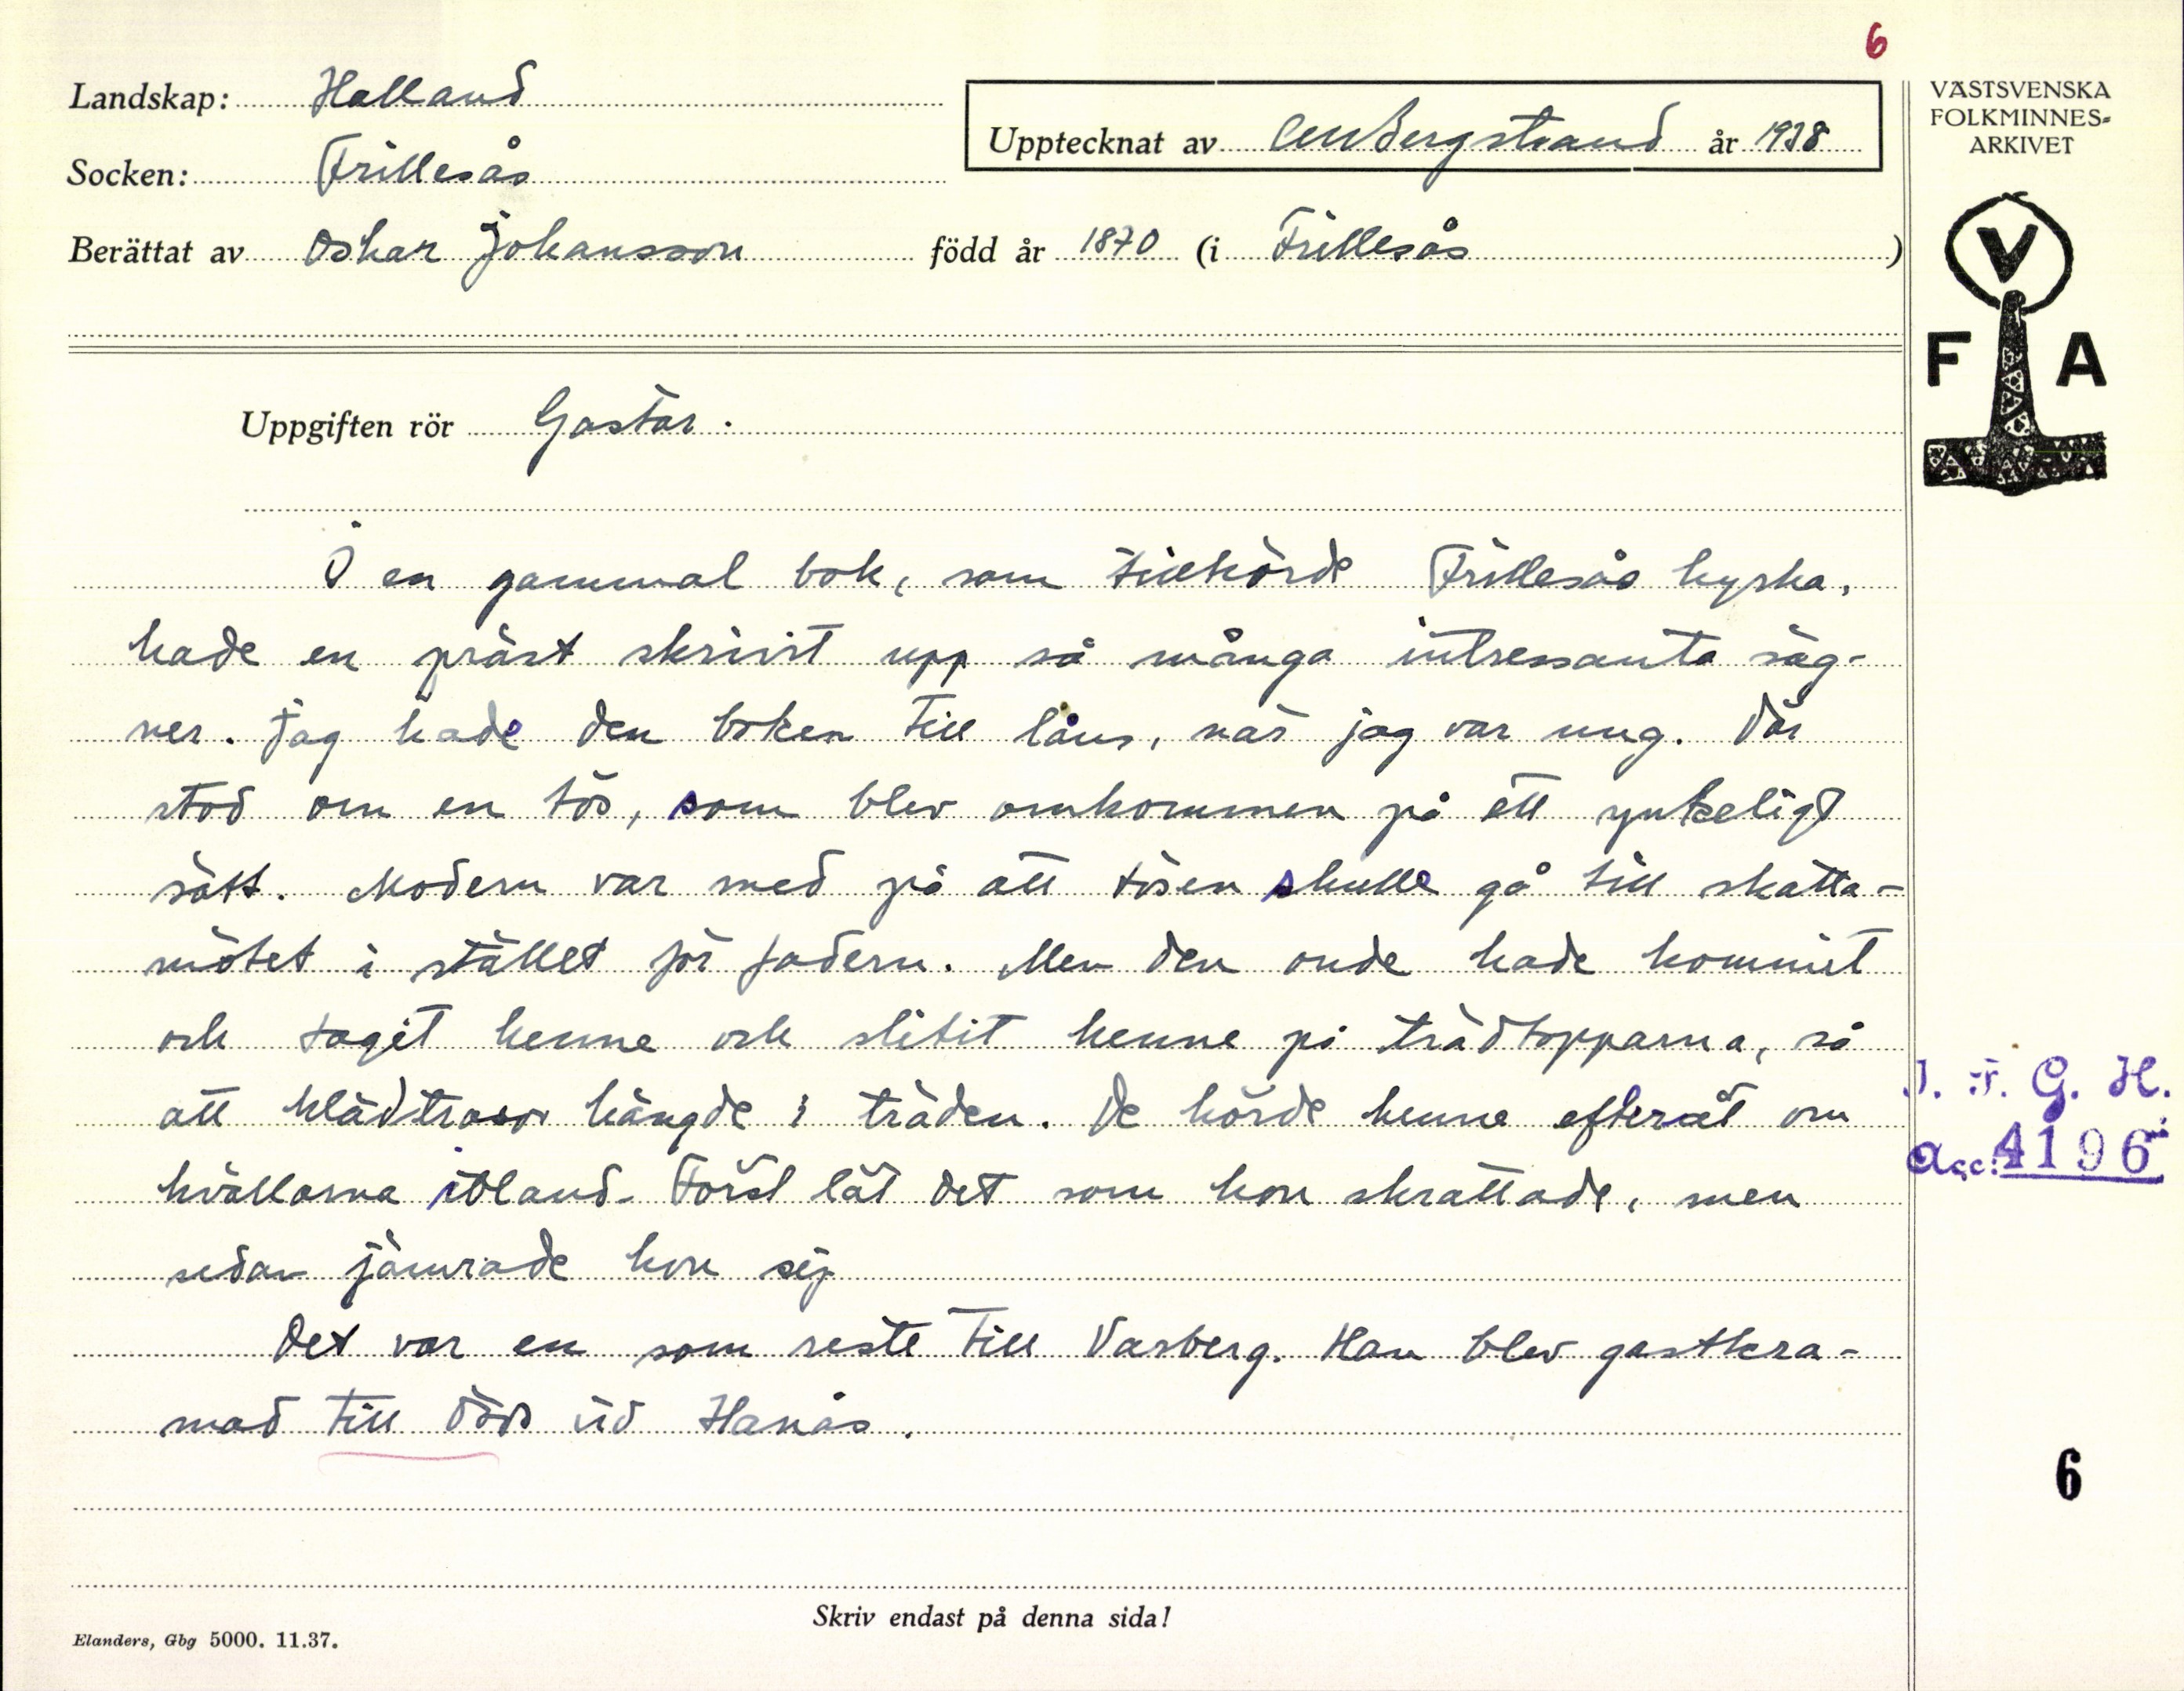 6
Landskap: Halland
Upptecknat av CM Bergstrand år 1938
VÄSTSVENSKA
FOLKMINNES-
ARKIVET
Socken: Frillesås
Berättat av Oskar Johansson född år 1870 (i Frillesås)
V
F A
Uppgiften rör Gastar.
I en gammal bok, som tillhörde Frillesås kyrka,
hade en präst skrivit upp så många intressanta säg-
ner. Jag hade den boken till låns, när jag var ung. Där
stod om en tös, som blev omkommen på ett ynkeligt
sätt. Modern var med på att tösen skulle gå till skatta-
mötet i stället för fadern. Men den onde hade kommit
och tagit henne och slitit henne på trädtopparna, så
att klädtrasor hängde i träden. De hörde henne efteråt om
kvällarna ibland. Först lät det som hon skrattade, men
sedan jämrade hon sig
Det var en som reste till Varberg. Han blev gastkra-
mad till döds vid Hanås.
I. F. G. H.
Acc. 4196
6
Skriv endast på denna sida!
Elanders, Gbg 5000. 11.37.